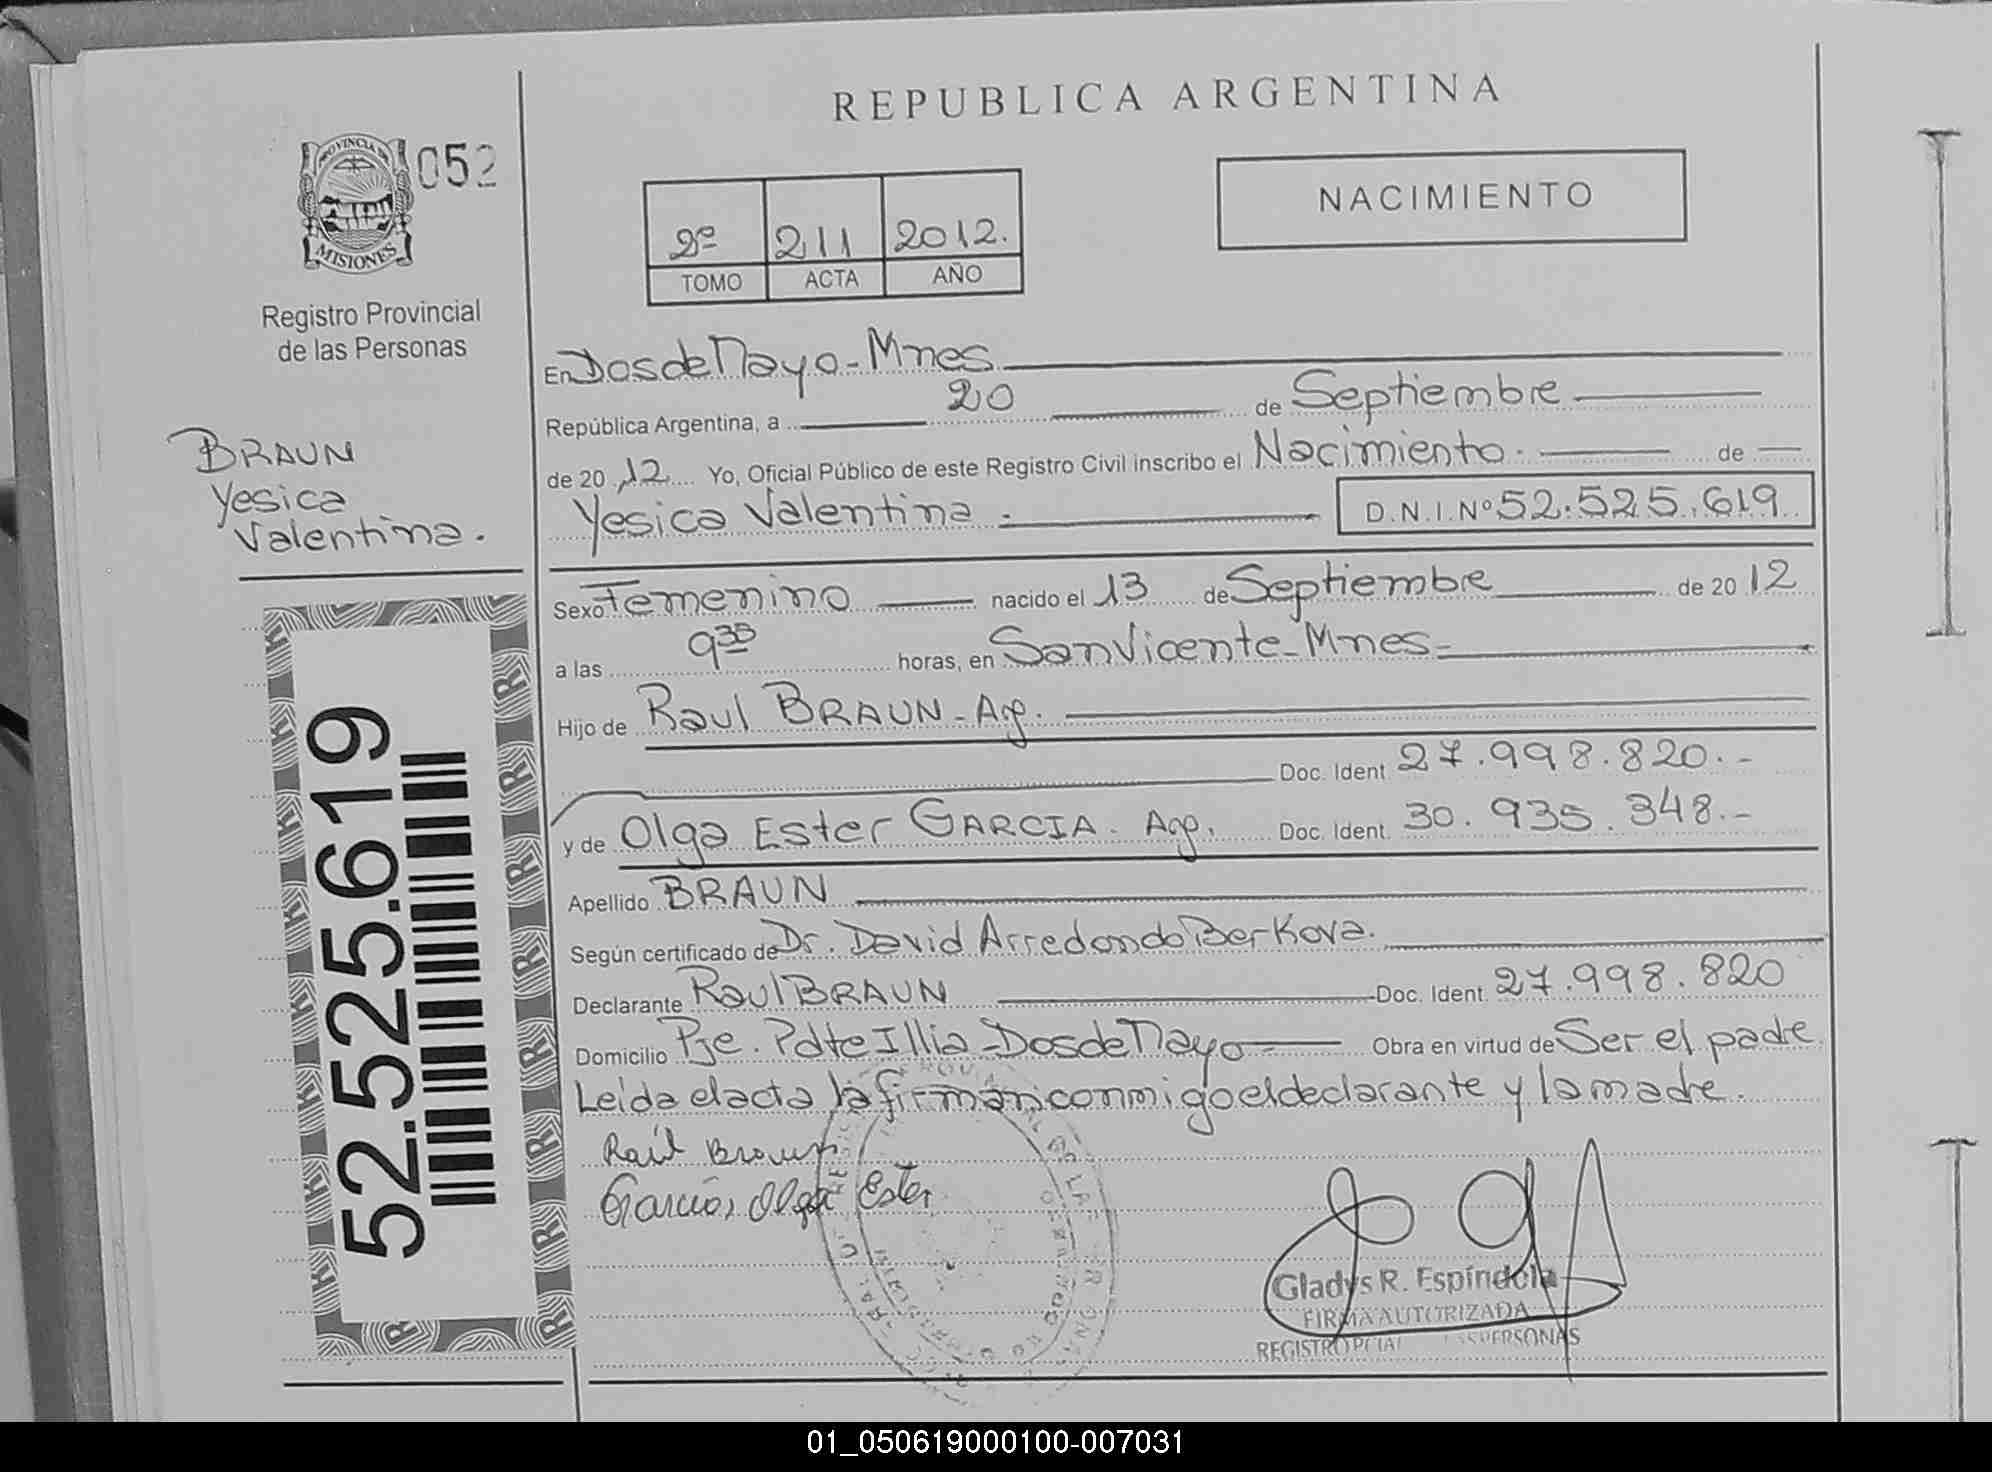 REPUBLICA ARGENTINA
PROVINCIA DE
MISIONES
052
Registro Provincial
de las Personas
2º 211 2012.
TOMO ACTA AÑO
NACIMIENTO
BRAUN
Yesica
Valentina.
52.525.619
En Dos de Mayo - Mnes
República Argentina, a 20 de Septiembre
de 20 12 Yo, Oficial Público de este Registro Civil inscribo el Nacimiento. de
Yesica Valentina . D.N.I. Nº 52.525.619
Sexo Femenino nacido el 13 de Septiembre de 20 12
a las 9 35 horas, en San Vicente - Mnes -
Hijo de Raul BRAUN - Arg.
Doc. Ident 27.998.820.-
y de Olga Ester GARCIA. Arg. Doc. Ident. 30.935.348.-
Apellido BRAUN
Según certificado de Dr. David Arredondo Berkova.
Declarante Raul BRAUN Doc. Ident. 27.998.820
Domicilio Pje. Pdte Illia - Dos de Mayo - Obra en virtud de Ser el padre.
Leída el acta la firman conmigo el declarante y la madre.
Raúl Braun
Garcia, Olga Ester
Gladys R. Espíndola
FIRMA AUTORIZADA
REGISTRO PCIAL PERSONAS
01_050619000100-007031